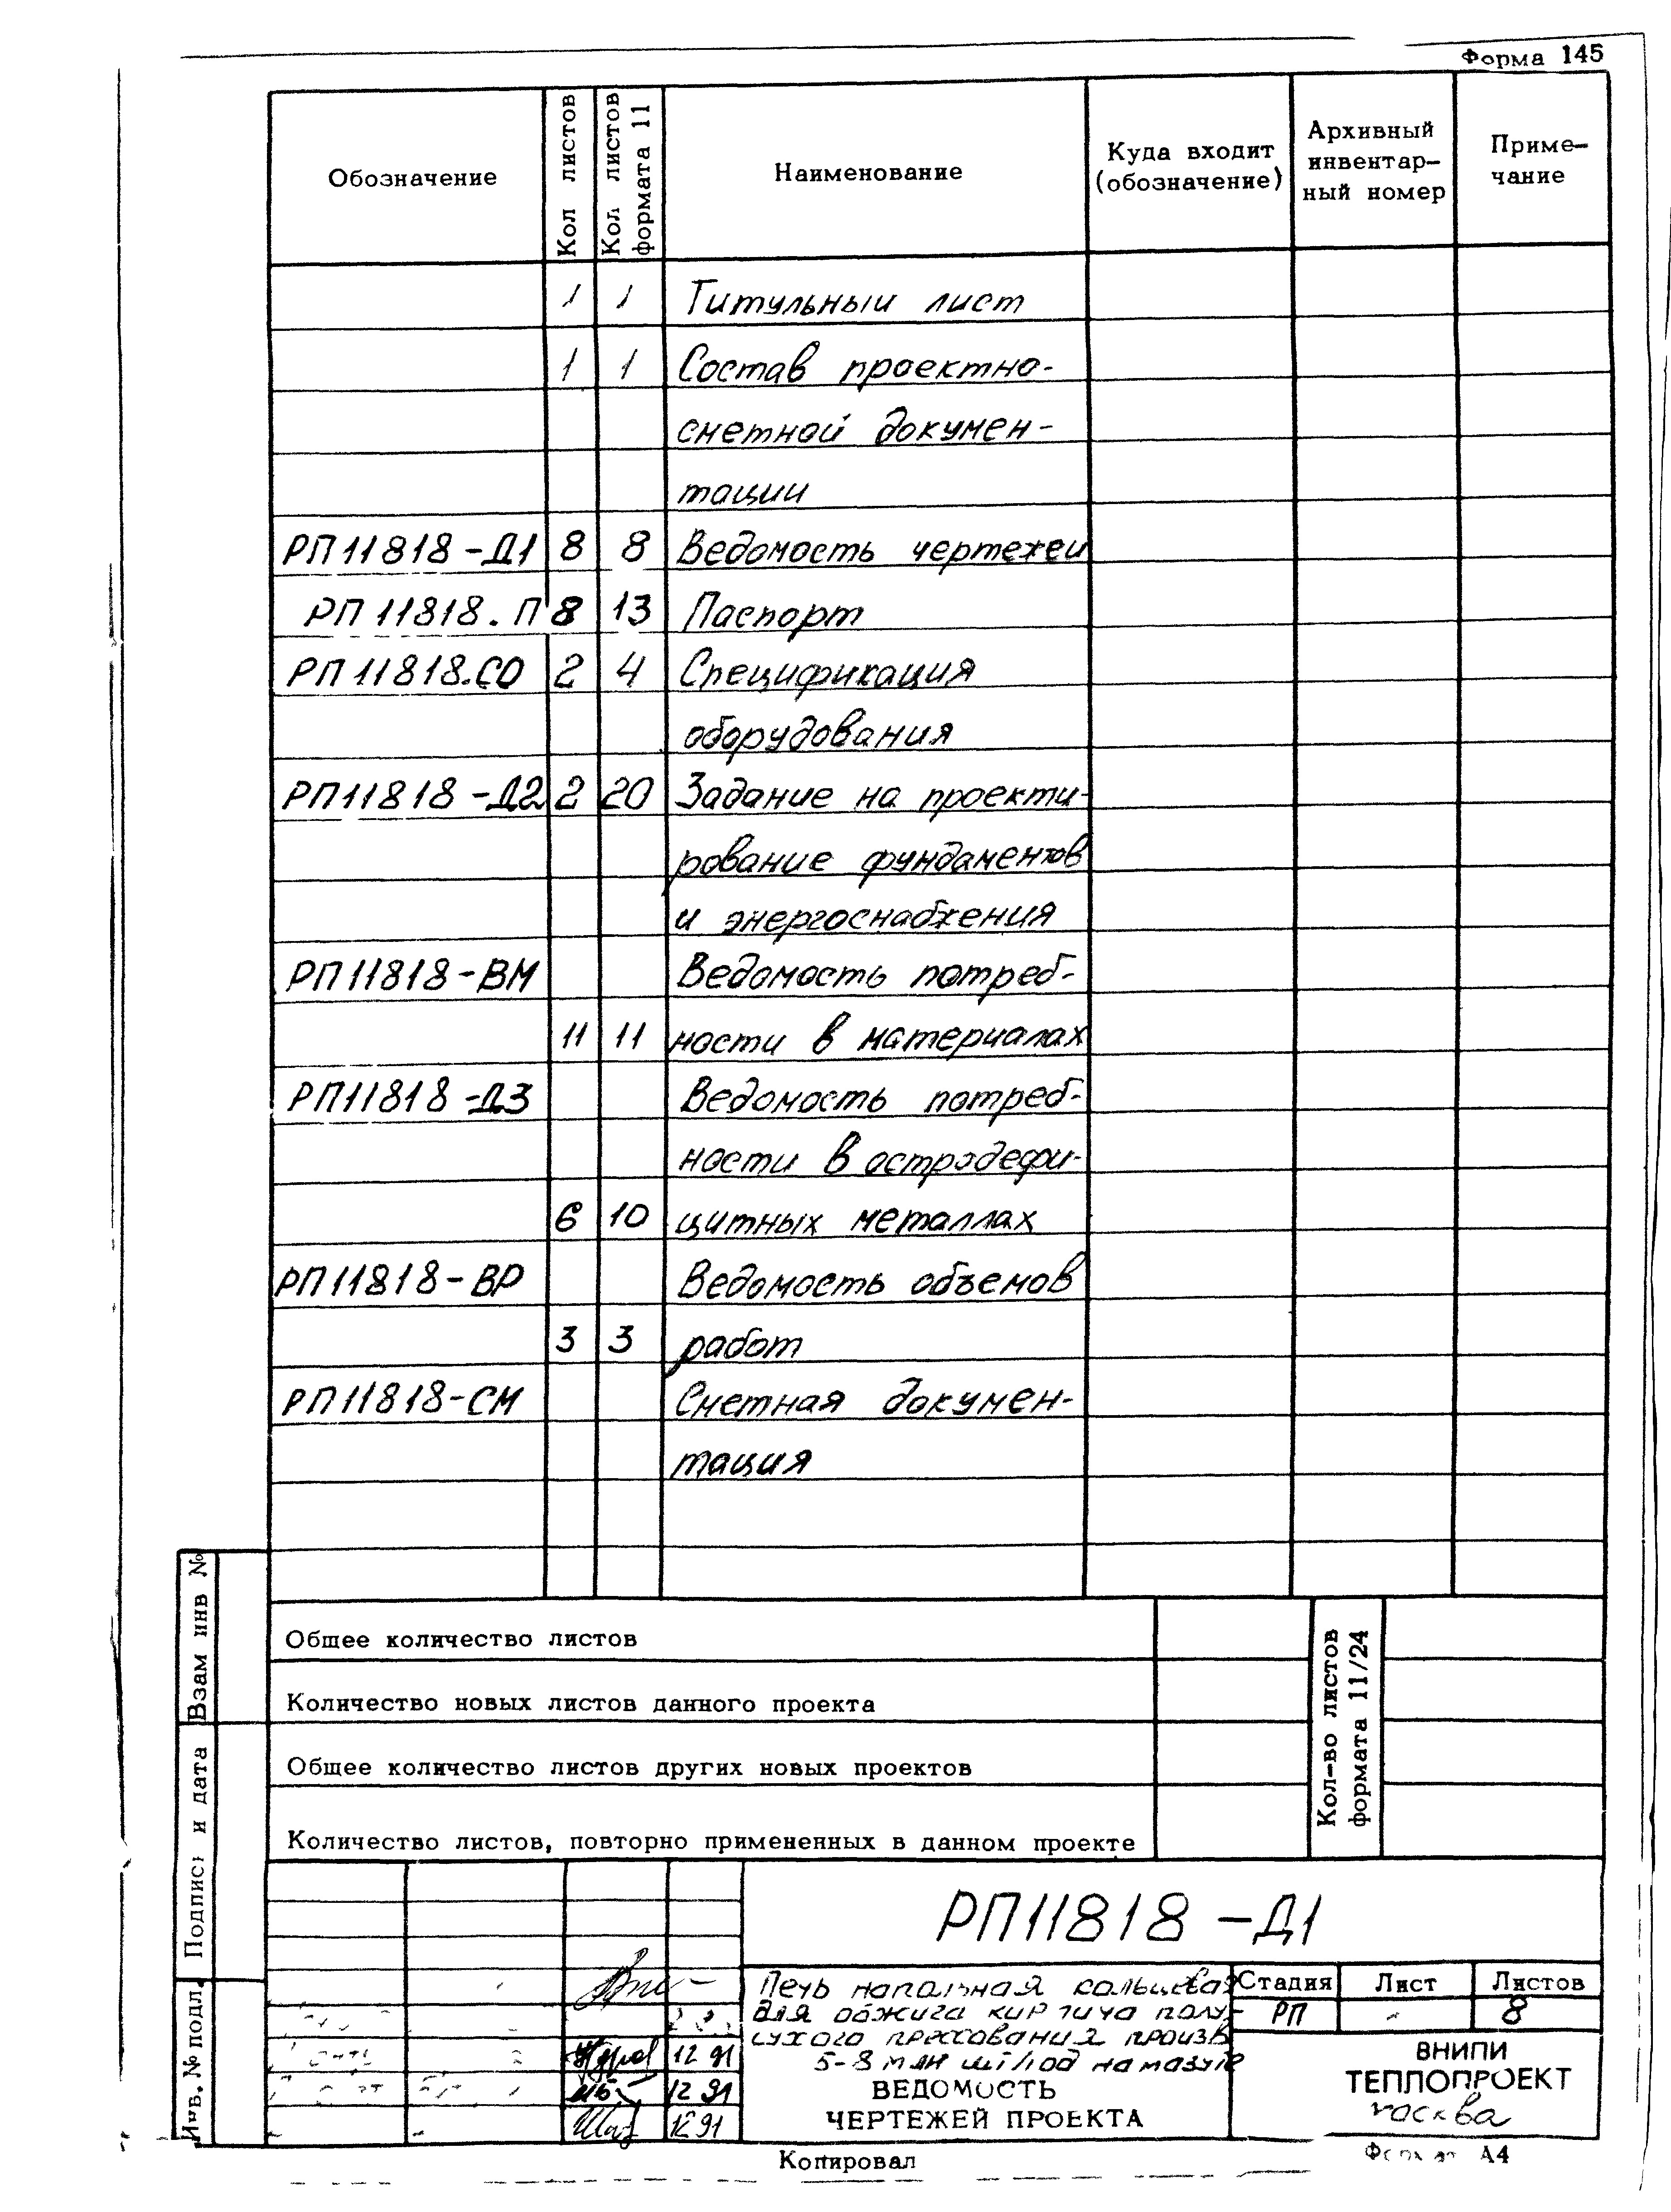 Форма 145
Обозначение
Кол листов
Кол листов
формата 11
Наименование
Куда входит
(обозначение)
Архивный
инвентар-
ный номер
Приме-
чание
1 1 Титульный лист
1 1 Состав проектно-
сметной докумен-
тации
РП11818-Д1 8 8 Ведомость чертежей
РП 11818.П 8 13 Паспорт
РП 11818.СО 2 4 Спецификация
оборудования
РП11818-Д2 2 20 Задание на проекти-
рование фундаментов
и энергоснабжения
РП11818-ВМ Ведомость потреб-
11 11 ности в материалах
РП11818-Д3 Ведомость потреб-
ности в остродефи-
6 10 цитных металлах
РП11818-ВР Ведомость объемов
3 3 работ
РП11818-СМ Сметная докумен-
тация
Общее количество листов
Количество новых листов данного проекта
Общее количество листов других новых проектов
Количество листов, повторно примененных в данном проекте
Кол-во листов
формата 11/24
Взам инв №
Подпись и дата
Инв. № подл.
РП11818-Д1
Печь напольная кольцевая
для обжига кирпича полу-
сухого прессования произв
5-8 млн шт/год на мазуте
ВЕДОМОСТЬ
ЧЕРТЕЖЕЙ ПРОЕКТА
Стадия Лист Листов
РП - 8
ВНИПИ
ТЕПЛОПРОЕКТ
Москва
12 91
12 91
12 91
Копировал
Формат А4